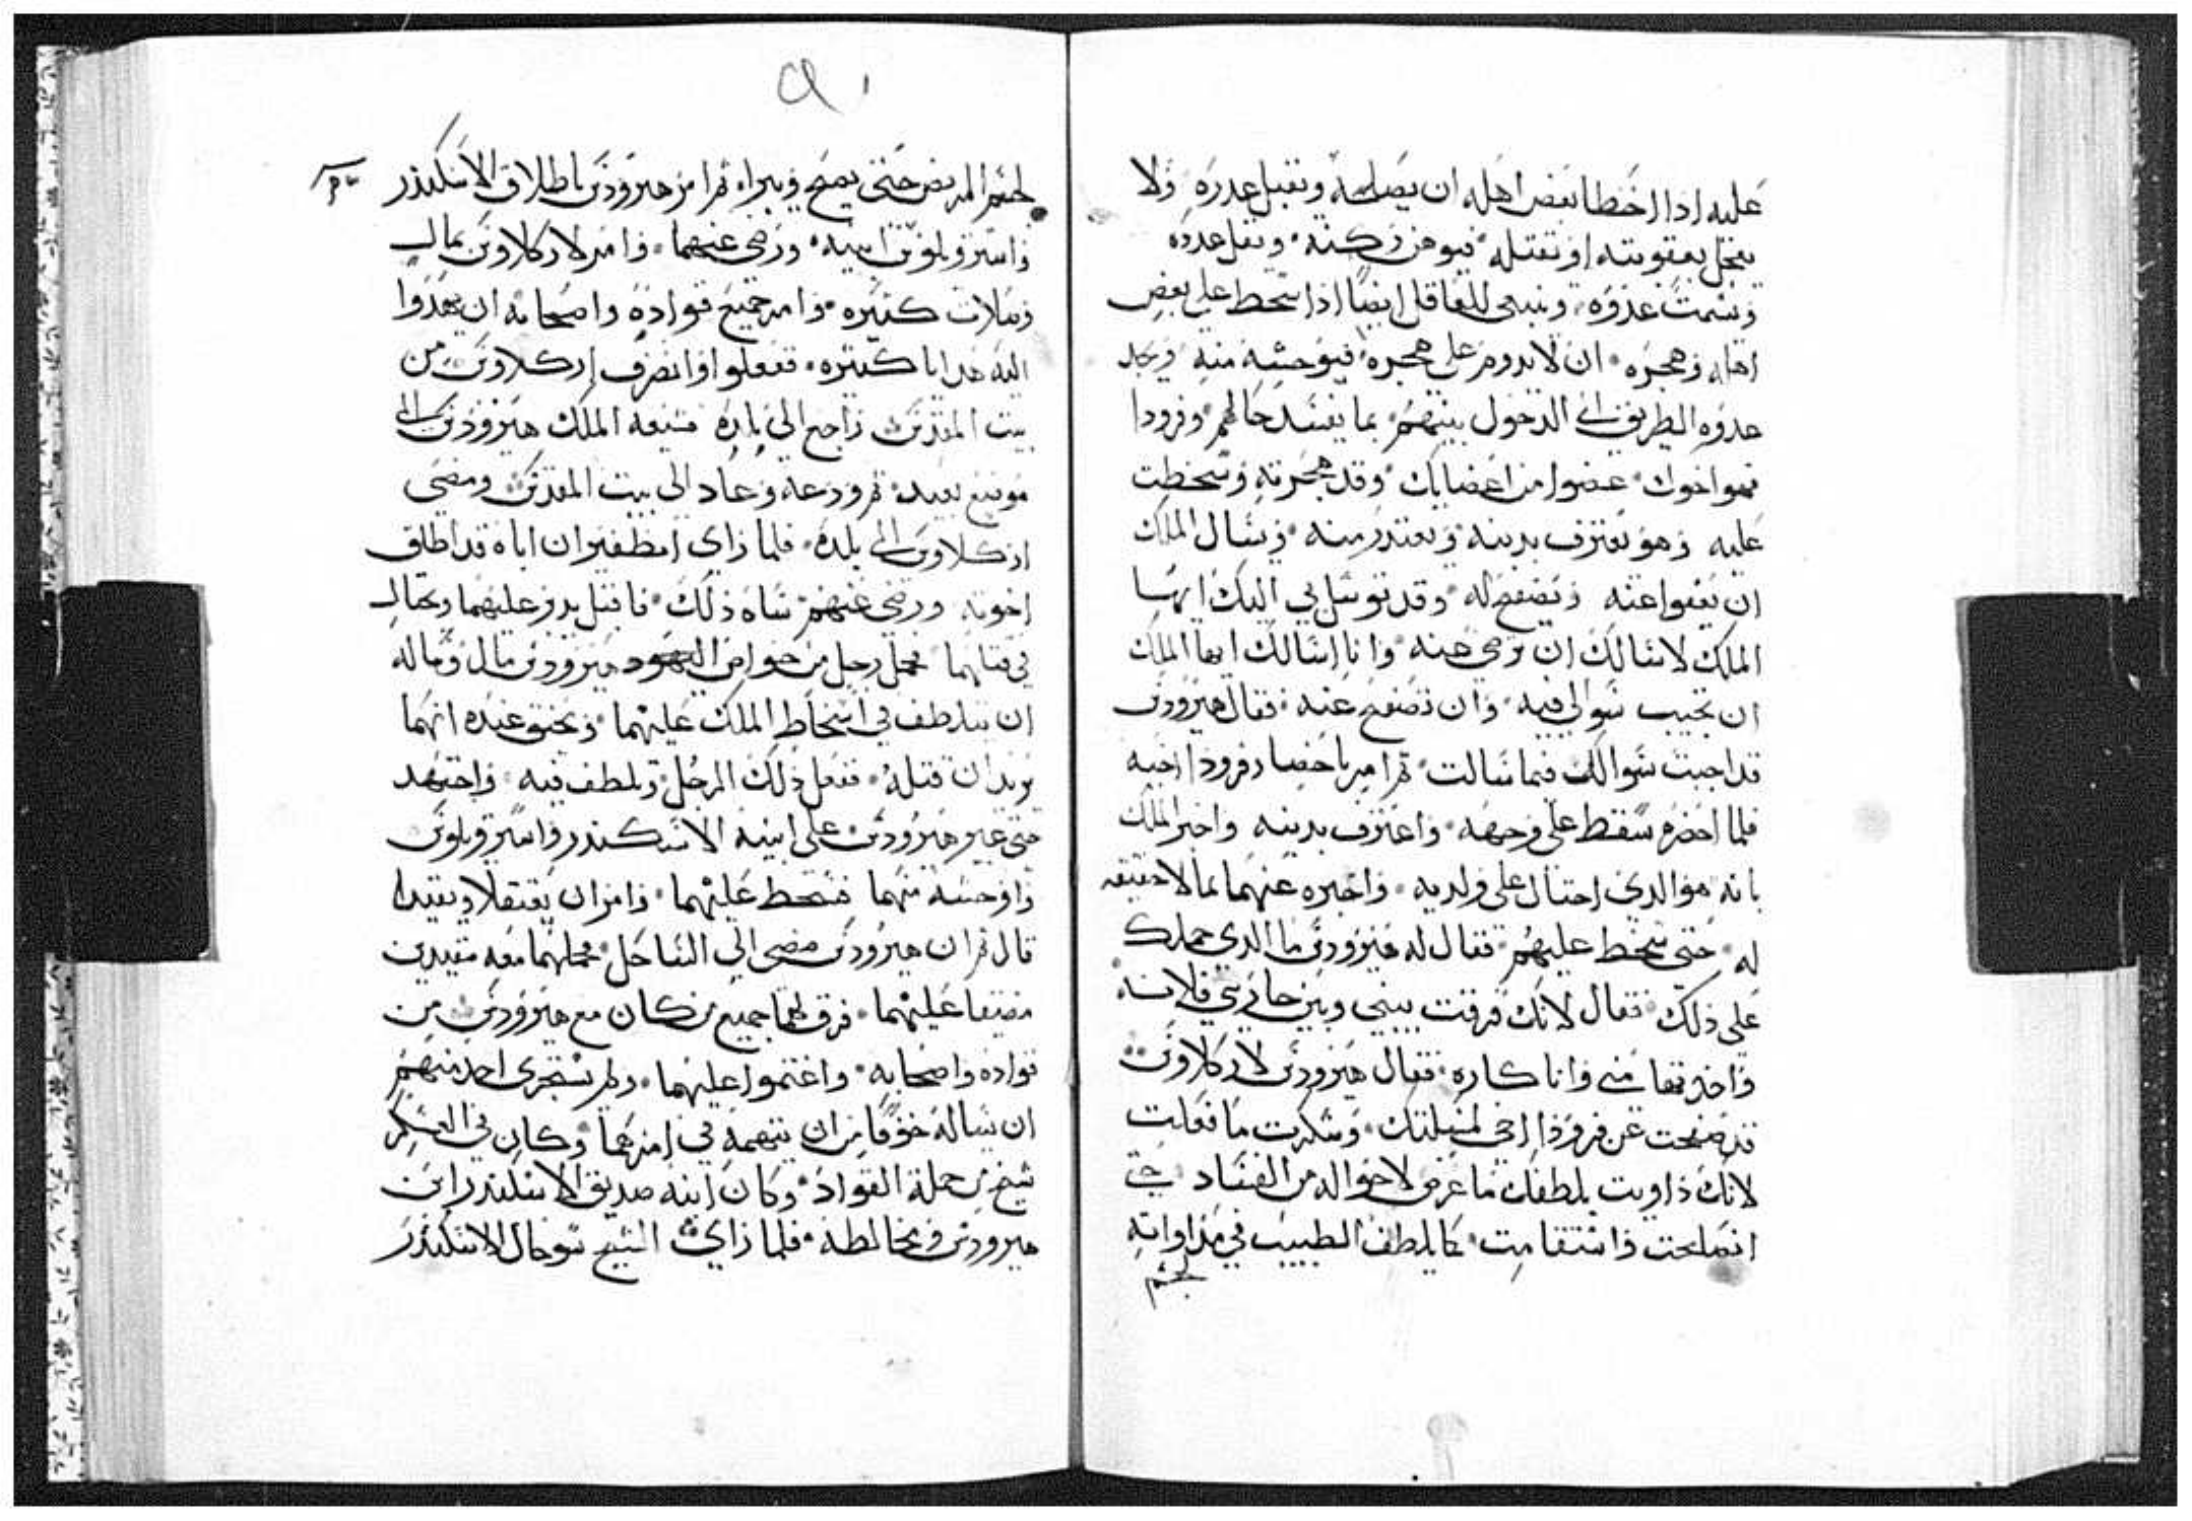 عليه اذا اخطا بعض اهله ان يصلحه ويقبل عدره ولا
يعجل بعقوبته او بقتله فيوهن ركنه ويقل عدده
ويشمت عدوه وينبغي للعاقل ايضا اذا سخط على بعض
اهله وهجره ان لا يدوم على هجره فيوحشه منه ويجد
عدوه الطريق الى الدخول بينهم بما يفسد حالهم وفرودا
فهو اخوك عضوا من اعضايك وقد هجرته وسخطت
عليه وهو يعترف بدينه ويعتدر منه ويسال الملك
ان يعفوا عنه ويصفح له وقد توسل بي اليك ايها
الملك لاسالك ان ترضى عنه وانا اسالك ايها الملك
ان تجيب سوالي فيه وان تصفح عنه فقال هيرودس
قد اجبت سوالك فيما سالت ثم امر باحضار فرودا اخيه
فلما احضره سقط على وجهه واعترف بدينه واخبر الملك
بانه هو الدي احتال على ولديه واخبره عنهما بما لا حقيقه
له حتى سخط عليهم فقال له هيرودس ما الدي حملك
على ذلك فقال لانك فرقت بيني وبين جاريتي فلانه
واخدتها مني وانا كاره فقال هيرودس لاركلاوس
قد صفحت عن فرودا اخي لمسلتك وشكرت ما فعلت
لانك داويت بلطفك ما عرض لاحواله من الفساد حتى
انصلحت واستقامت كما يلطف الطبيب في مداواته
لجسم
٢٩١
لجسم المريض حتى يصح ويبراه ثم امر هيرودس باطلاق الاسكندر
واستروبلوس ابنيه ورضى عنهما وامر لاركلاوس بمال
وصلات كثيره وامر جميع قواده واصحابه ان يهدوا
اليه هدايا كثيره ففعلوا وانصرف اركلاوس من
بيت المقدس راجع الى بلده فشيعه الملك هيرودس الى
موضع بعيد ثم ودعه وعاد الى بيت المقدس ومضى
اركلاوس الى بلده فلما راي انطفير ان اباه قد اطلق
اخوته ورضى عنهم ساه ذلك فاقبل يدور عليهما ويحتال
في قتلهما فحمل رجل من خواص هيرودس مال وساله
ان يتلطف في اسخاط الملك عليهما ويحقق عنده انهما
يريدان قتله ففعل ذلك الرجل وتلطف فيه واجتهد
حتى غير هيرودس على ابنيه الاسكندر واستروبلوس
واوحشه منهما فسخط عليهما وامر ان يعتقلا ويقيدا
قال ثم ان هيرودس مضى الى الساحل فحملهما معه مقيدين
مضيقا عليهما فرق لهما جميع من كان مع هيرودس من
قواده واصحابه واغتموا عليهما ولم يستجرى احد منهم
ان يساله خوفا من ان يتهمه في امرهما وكان في العسكر
شيخ من جملة القواد وكان ابنه صديق الاسكندر ابن
هيرودس ومخالطه فلما راى الشيخ سو حال الاسكندر